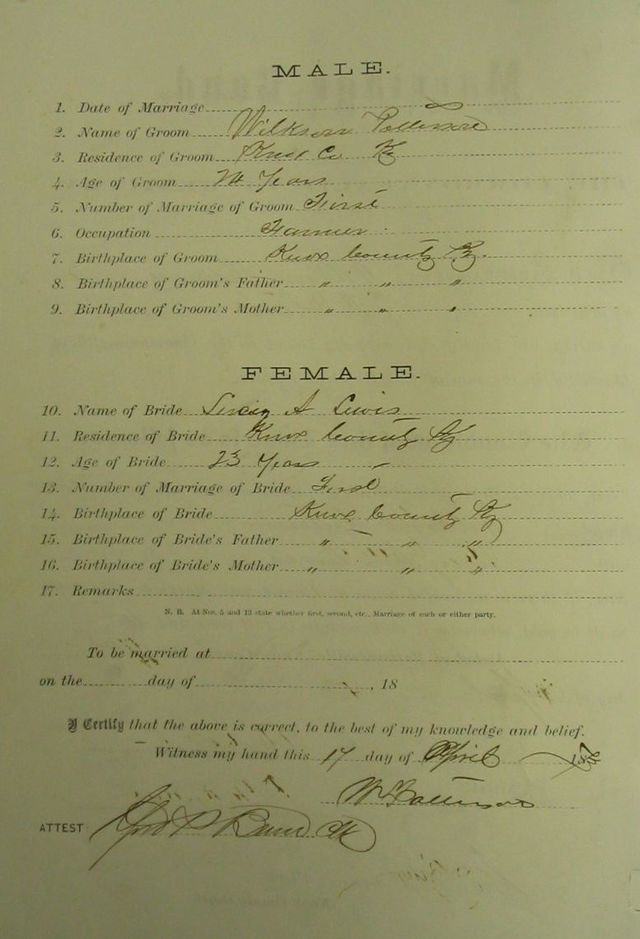 MALE.
1. Date of Marriage
2. Name of Groom Wilkson Patterson
3. Residence of Groom Knox Co Ky
4. Age of Groom Years
5. Number of Marriage of Groom First
6. Occupation Farmer
7. Birthplace of Groom Knox County Ky.
8. Birthplace of Groom's Father " " "
9. Birthplace of Groom's Mother " " "
FEMALE.
10. Name of Bride A Lewis
11. Residence of Bride Knox County Ky
12. Age of Bride 23 Years
13. Number of Marriage of Bride First
14. Birthplace of Bride Knox County Ky
15. Birthplace of Bride's Father " " "
16. Birthplace of Bride's Mother " " "
17. Remarks
N. B. At Nos. 5 and 13 state whether first, second, etc., Marriage of each or either party.
To be married at
on the day of , 18
I Certify that the above is correct, to the best of my knowledge and belief.
Witness my hand this 17 day of April 187
W Patterson
ATTEST